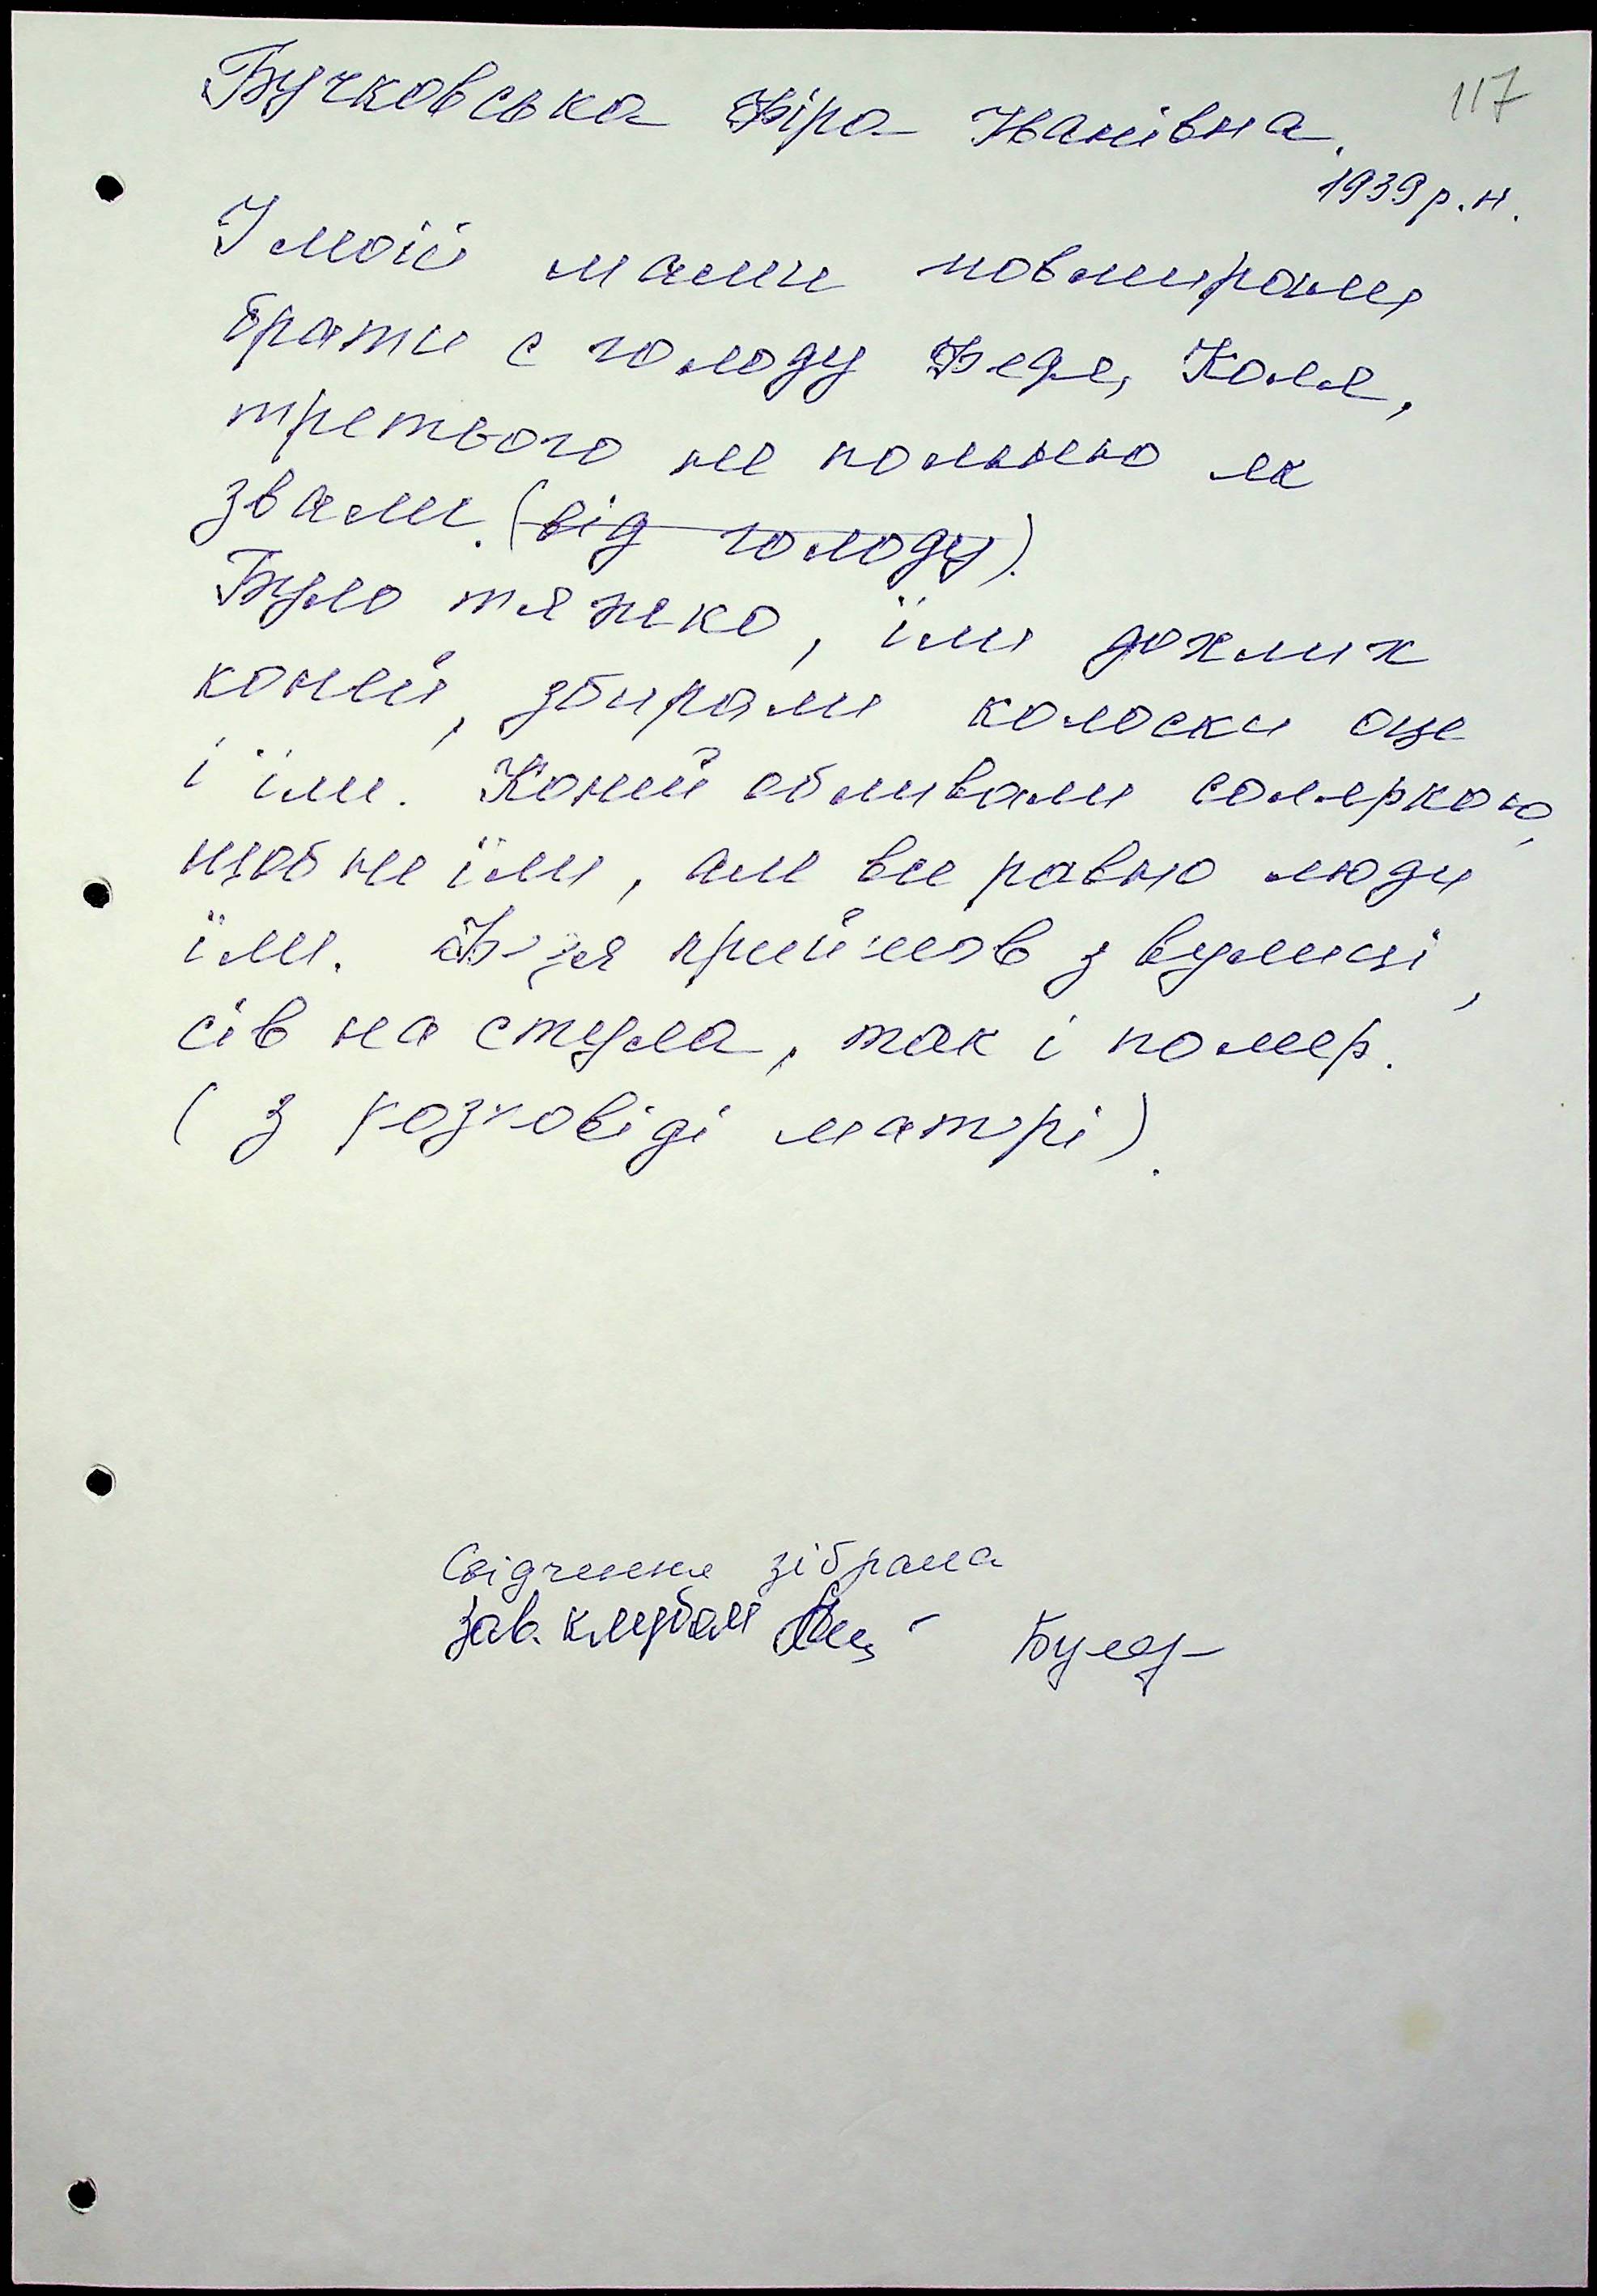 117
Бучковська Фіра Іванівна,
1939 р.н.
У моїй мами повмирали
брати с голоду Федя, Коля,
третього не помню як
звали. (від голоду).
Було тяжко, їли дохлих
коней, збирали колоски оце
і їли. Коней обливали соляркою,
щоб не їли, але все равно люди
їли. Федя прийшов з вулиці,
сів на стула, так і помер.
(з розповіді матері).
Свідчення зібрала
Зав. клубом